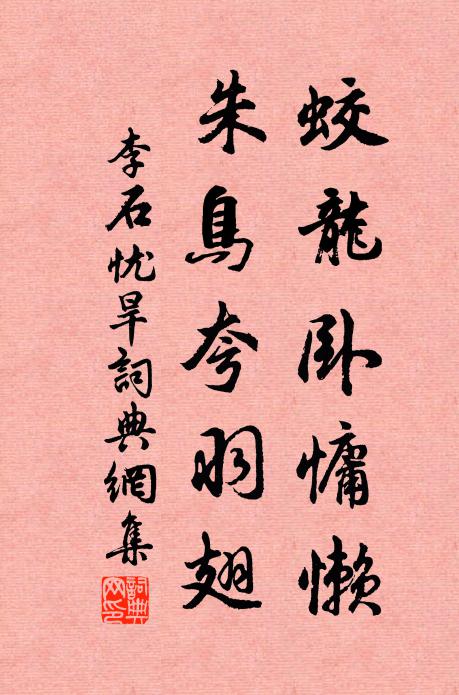 蛟龍卧慵懶
朱鳥夸羽翅
李石忧旱詞典網集
詞典网印